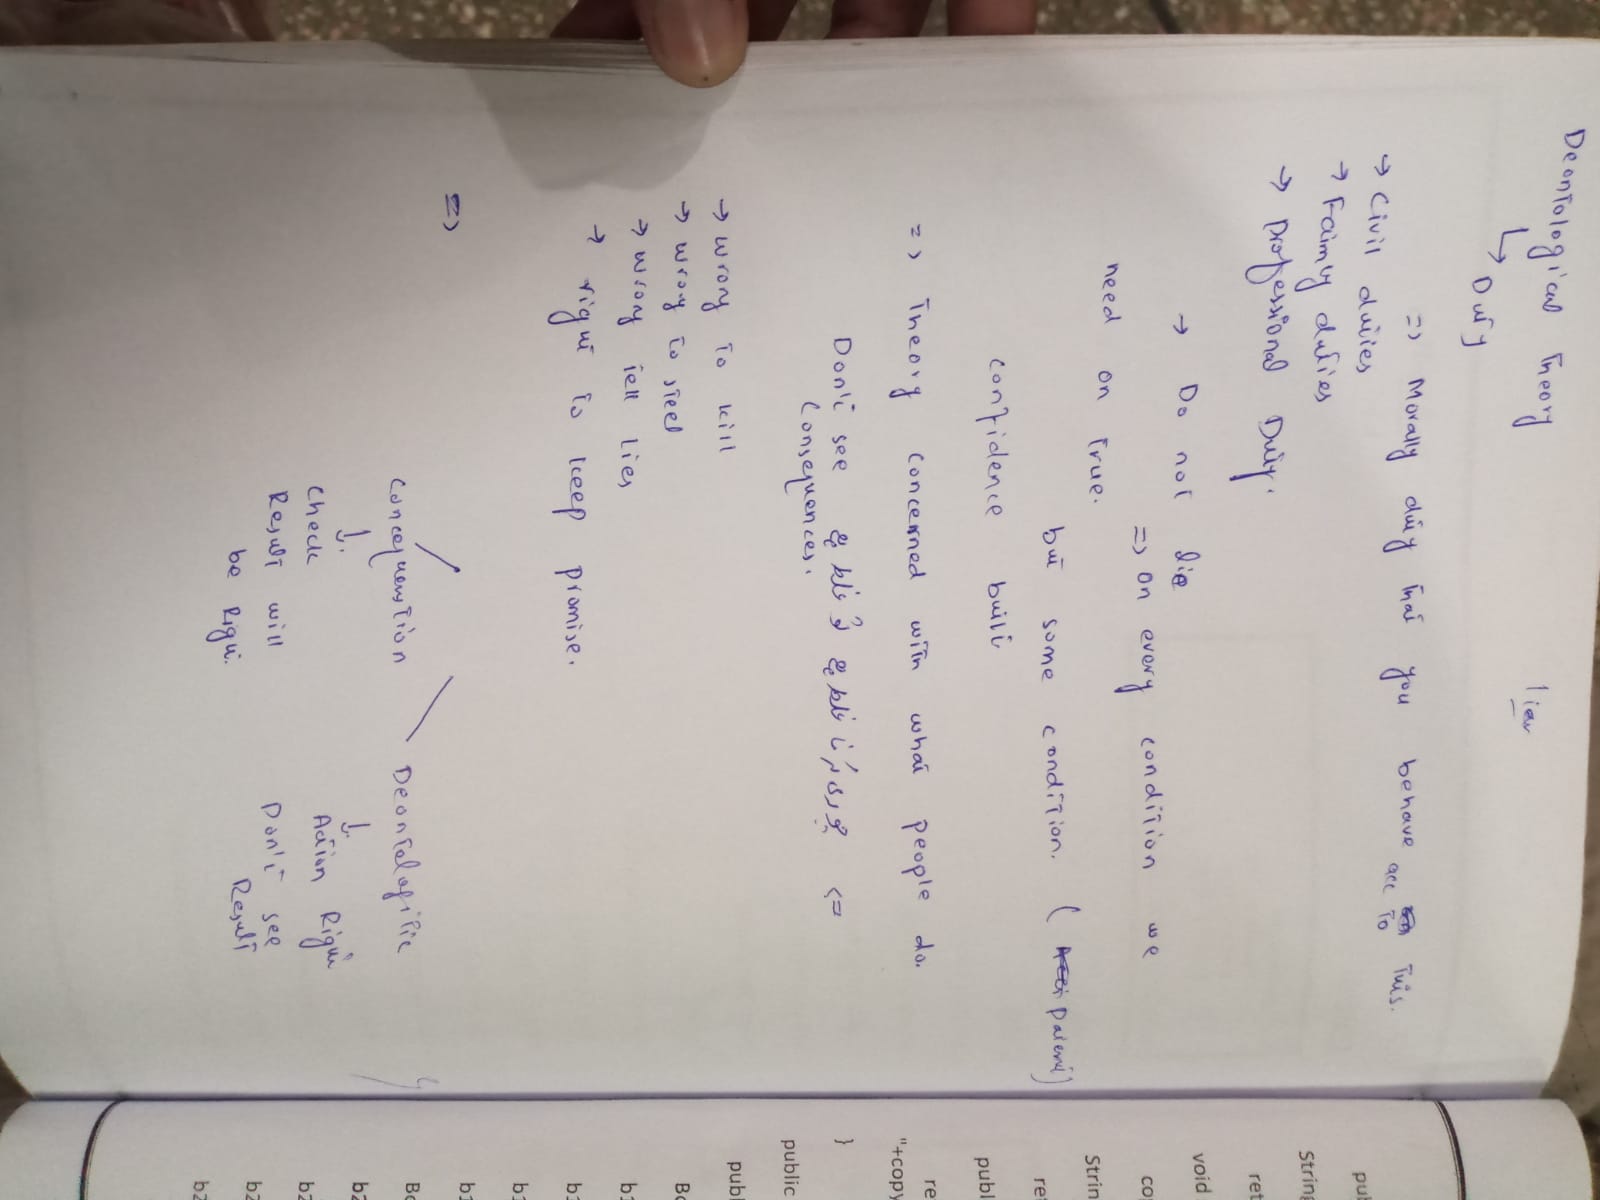 Deontological Theory
lier
↳ Duty
=> Morally duty that you behave acc to this.
→ Civil duties
→ Faimly duties
→ Professional Duty.
→ Do not lie
=> on every condition we
need on True.
but some condition. ( parent)
confidence built
=> Theory concerned with what people do.
Don't see
Consequences.
→ wrong to kill
→ wrong to steel
→ wrong tell lies
→ right to keep promise.
=>
Consequenstion Deontalogitic
↓ ↓
Check Action Right
Result will Don't see
be Right. Result
pul
String
ret
void
co
Strin
re
publ
re
"+copy
}
public
publ
Bo
b1
b1
b1
b1
Bo
b2
b2
b2
b2